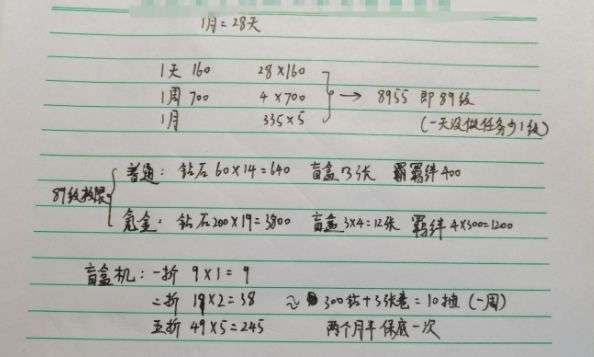 1月=28天
1天 160 28×160
1周 700 4×700 → 8955 即89级
1月 335×5 (一天没做任务少1级)
普通: 钻石60×14=640 盲盒 3张 羁绊400
89级
氪金: 钻石200×19=3800 盲盒 3×4=12张 羁绊 4×300=1200
盲盒机: 一折 9×1=9
二折 19×2=38 ≈ 300钻+3张卷=10抽 (一周)
五折 49×5=245 两个月半保底一次